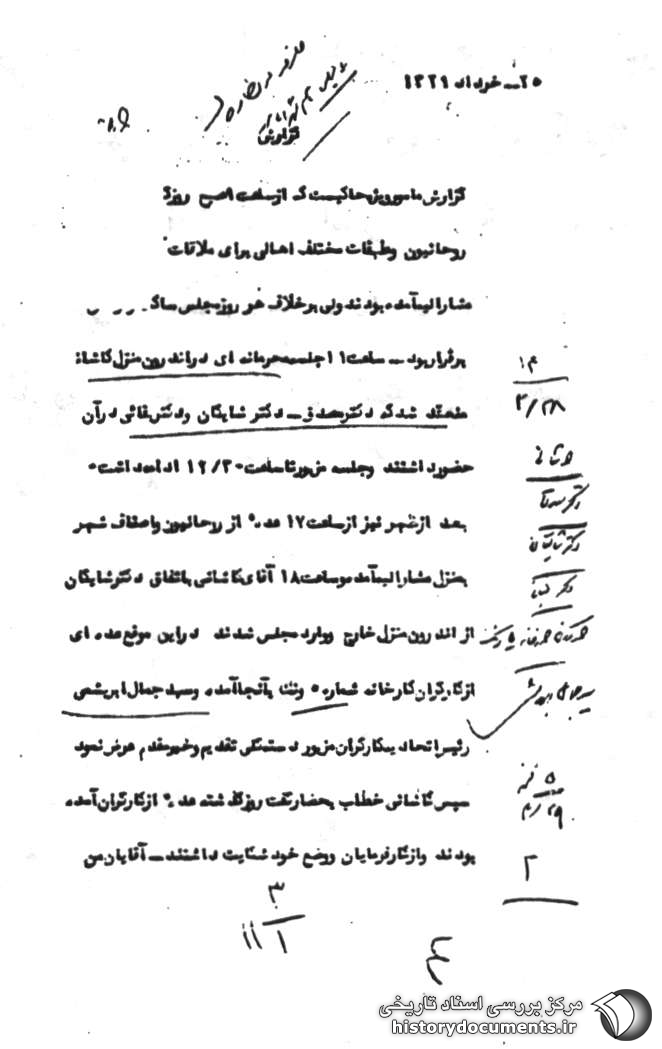 ۲۵ــ خرداد ۱۳۲۹
گزارش
گزارش مامور ویژه حاکیست که از ساعت ۸ صبح روز
روحانیون وطبقات مختلف اهالی برای ملاقات
مشارالیه آمده بودند ولی برخلاف هر روز مجلس ساکت
برقرار بود ــ ساعت ۱۱ جلسه محرمانه ای در اندرون منزل کاشانی
منعقد شد که دکتر مصدق ــ دکتر شایگان ودکتر بقائی در آن
حضور داشتند وجلسه مزبور تا ساعت ۱۲/۳۰ ادامه داشت۰
بعد از ظهر نیز از ساعت ۱۷ عده ای از روحانیون واصناف شهر
بمنزل مشارالیه آمده وساعت ۱۸ آقای کاشانی باتفاق دکتر شایگان
از اندرون منزل خارج و وارد مجلس شدند در این موقع عده ای
از کارگران کارخانه شماره ۵ ونک بآنجا آمده وسید جمال ابریشمی
رئیس اتحادیه کارگران مزبور دسته گلی تقدیم وخیر مقدم عرض نمود
سپس کاشانی خطاب بحضار گفت روز گذشته عده ای از کارگران آمده
بودند واز کارفرمایان ووضع خود شکایت داشتند ــ آقایان من
۱۴
۳/۲۸
کاشانی
دکتر مصدق
دکتر شایگان
دکتر بقائی
۵ نسخه
۲
۳
۱
۴
مرکز بررسی اسناد تاریخی
historydocuments.ir